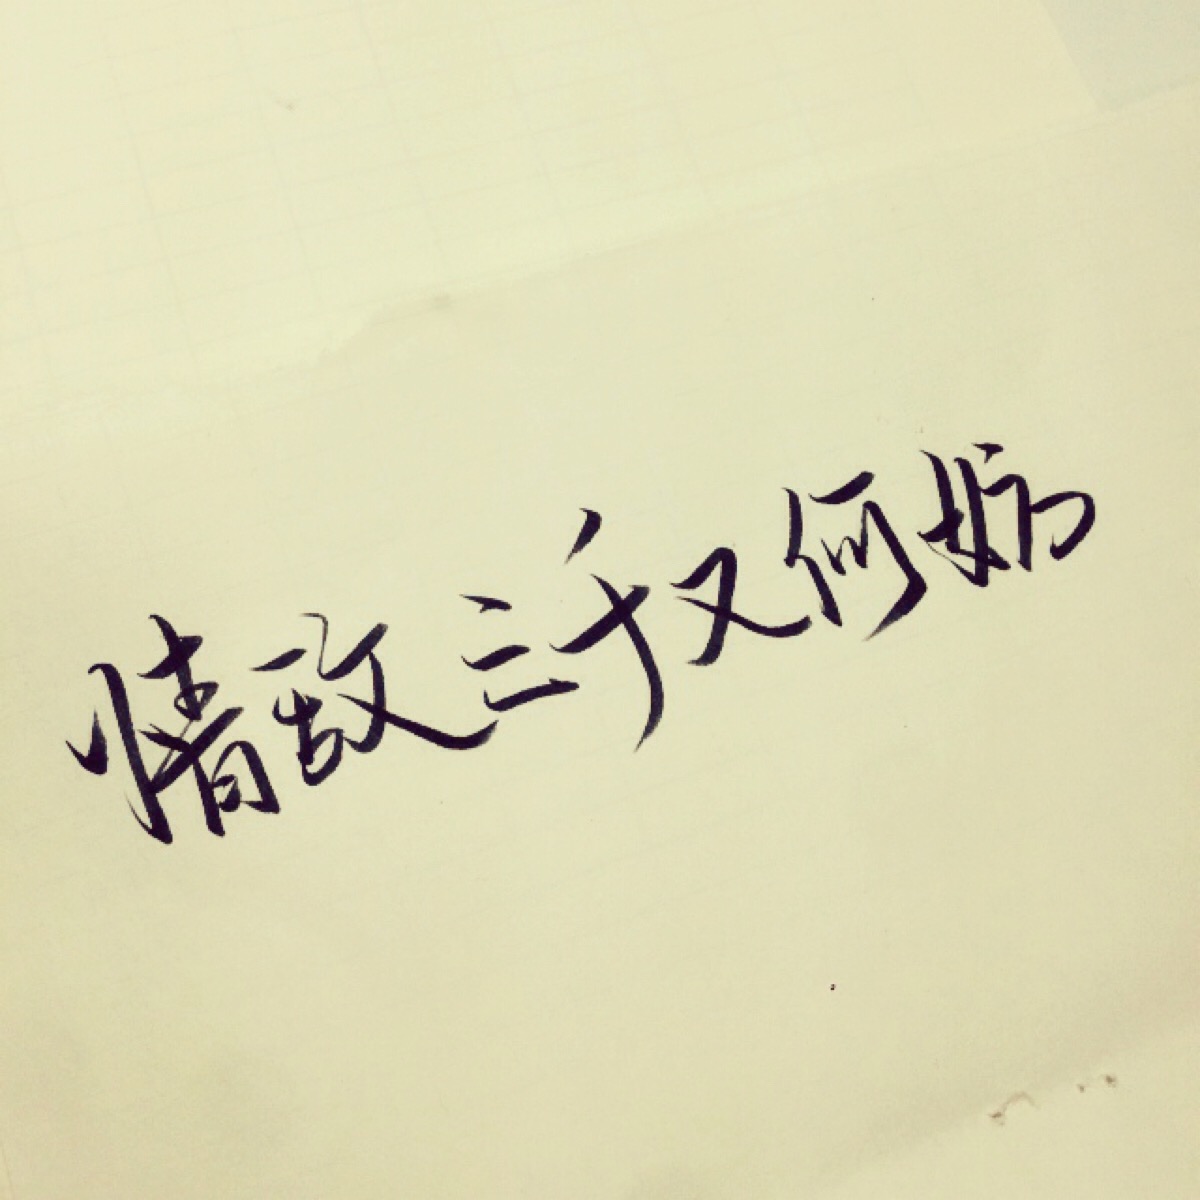 情敌三千又何妨